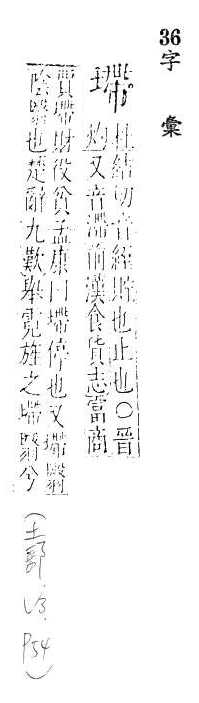 36字彙
墆
杜結切音絰貯也止也〇晉
灼又音滯前漢食貨志富商
賈墆財役貧孟康曰墆停也又墆翳
陰翳也楚辭九歎舉霓旌之墆翳兮
(土部. V3. P54)